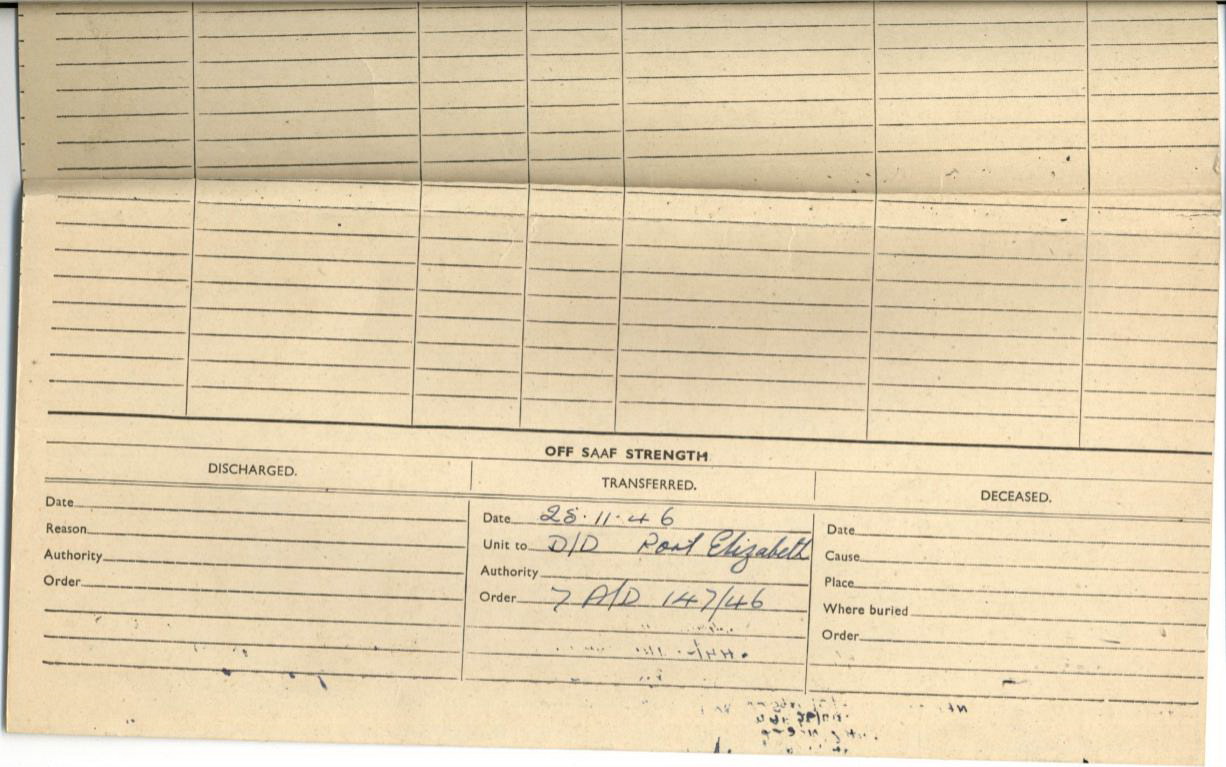 OFF SAAF STRENGTH
DISCHARGED.
Date
Reason
Authority
Order
TRANSFERRED.
Date 28·11·46
Unit to D/D Port Elizabeth
Authority
Order 7 A/D 147/46
DECEASED.
Date
Cause
Place
Where buried
Order